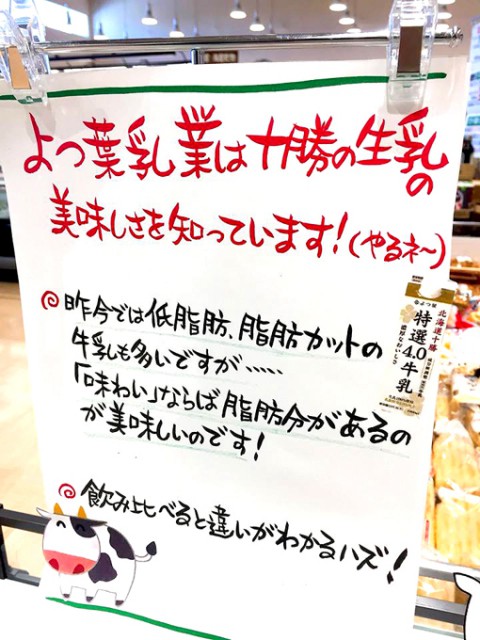 よつ葉乳業は十勝の生乳の
美味しさを知っています!(やるネ〜)
昨今では低脂肪、脂肪カットの
牛乳も多いですが……
「味わい」ならば脂肪分があるの
が美味しいのです!
飲み比べると違いがわかるハズ!
よつ葉
北海道十勝
特選
4.0
牛乳